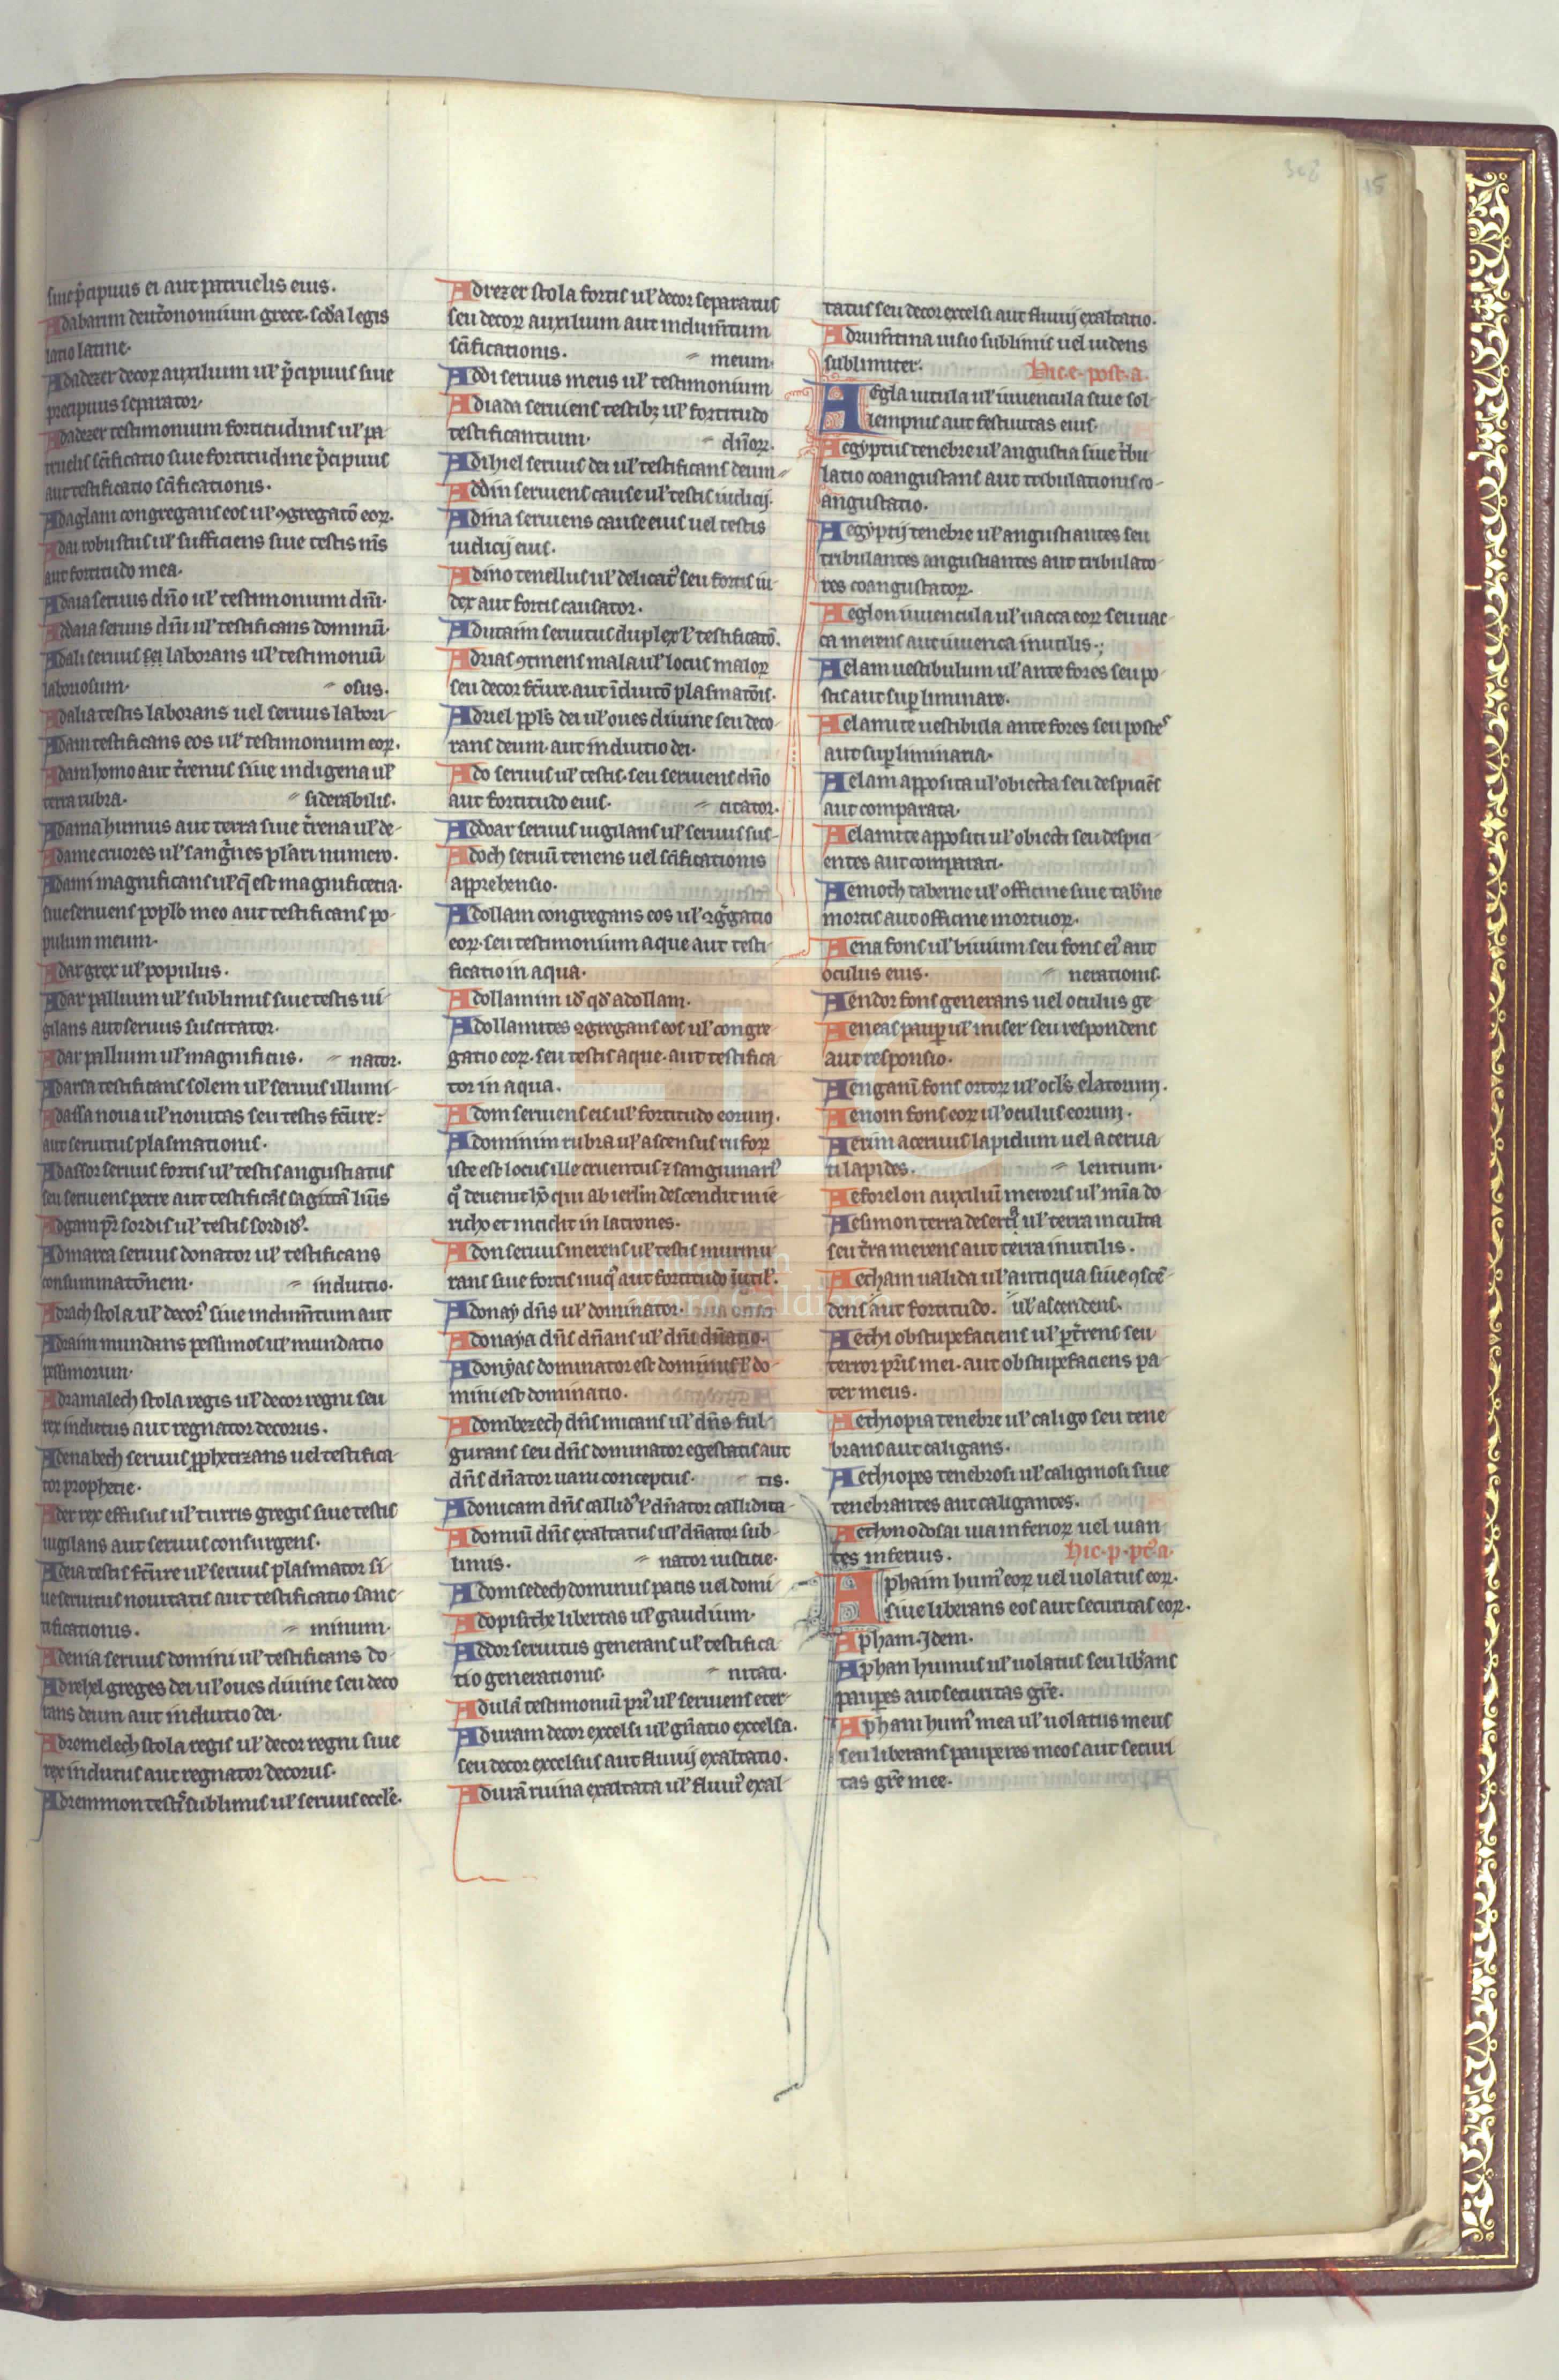 siue p̄cipuus ei aut patruelis eius.
Adabarim deut̄onomium grece. sc̄da legis
latio latine.
Adadezer decor̄ auxilium ul̕ p̄cipuus siue
precipuus separator.
Adadezer testimonium fortitudinis ul̕ pa
truelis sc̄ificatio siue fortitudine p̄cipuus
aut testificatio sc̄ificationis.
Adaglam congregans eos ul̕ ꝯgregatō eoꝝ.
Adai robustus ul̕ sufficiens siue testis m̄s
aut fortitudo mea.
Adaia seruus dn̄o ul̕ testimonium dn̄i.
Addaia seruus dn̄i ul̕ testificans dominū.
Adali seruus sei laborans ul̕ testimoniū
laboriosum. osus.
Adalia testis laborans uel seruus labori
Adam testificans eos ul̕ testimonium eoꝝ.
Adam homo aut t̄renus siue indigena ul̕
terra rubra. siderabilis.
Adama humus aut terra siue t̄rena ul̕ de
Adame cruores ul̕ sanḡnes pl̄ari numero.
Adami magnificans ul̕ q̄ est magnificētia.
siue seruiens poplo meo aut testificans po
pulum meum.
Adar grex ul̕ populus.
Adar pallium ul̕ sublimis siue testis ui
gilans aut seruus suscitator.
Adar pallium ul̕ magnificus. nator.
Adarsa testificans solem ul̕ seruus illumi
Adassa noua ul̕ nouitas seu testis fc̄ure:
aut seruitus plasmationis.
Adassor seruus fortis ul̕ testis angustiatus
seu seruiens petre aut testificās sagittā liu̅s
Adgam pr̄ sordis ul̕ testis sordid̕.
Admatta seruus donator ul̕ testificans
consummatōnem. indutio.
Adrach stola ul̕ decor̕ siue indum̄tum aut
Adraim mundans pessimos ul̕ mundatio
pessimorum.
Adramalech stola regis ul̕ decor regni seu
rex indutus aut regnator decorus.
Adenabech seruus ꝓphetizans uel testifica
tor prophetie.
Ader rex effusus ul̕ turris gregis siue testis
uigilans aut seruus consurgens.
Adeia testis fc̄ure ul̕ seruus plasmator si
ue seruitus nouitatis aut testificatio sanc
tificationis. minum.
Ademia seruus domini ul̕ testificans do
Adrehel greges dei ul̕ oues diuine seu deco
rans deum aut inductio dei.
Adromelech stola regis ul̕ decor regni siue
rex indutus aut regnator decorus.
Adremmon testis̕ sublimis ul̕ seruus eccl̄e.
Adrezer stola fortis ul̕ decor separatus
seu decoꝝ auxilium aut indum̄tum
sc̄ificationis. meum.
Addi seruus meus ul̕ testimonium
Adiada seruiens testibꝫ ul̕ fortitudo
testificantium. dn̄oꝝ.
Adihiel seruus dei ul̕ testificans deum
Addin seruiens cause ul̕ testis iudicij.
Adina seruiens cause eius uel testis
iudicij eius.
Adino tenellus ul̕ delicat̕ seu fortis iu
dex aut fortis causator.
Aditaim seruitus duplex l̕ testificatō.
Adrias ꝯtinens mala ul̕ locus maloꝝ
seu decor fc̄ure. aut īdutō plasmatōis.
Adriel ppl̄s dei ul̕ oues diuine seu deco
rans deum. aut indutio dei.
Ado seruus ul̕ testis. seu seruiens dn̄o
aut fortitudo eius. citator.
Addoar seruus uigilans ul̕ seruus sus
Adoch seruū tenens uel sc̄ificationis
apprehensio.
Adollam congregans eos ul̕ ꝯg̅gatio
eoꝝ. seu testimonium aque aut testi
ficatio in aqua.
Adollamim id̕ qd̕ adollam.
Adollamites ꝯgregans eos ul̕ congre
gatio eoꝝ. seu testis aque. aut testifica
tor in aqua.
Adom seruiens eis ul̕ fortitudo eorum.
Adominim rubra ul̕ ascensus rufoꝝ
iste est locus ille cruentus ⁊ sanguinari̕
q̊ deuenit hō qui ab ierl̄m descendit in ie
richo et incidit in latrones.
Adon seruus merens ul̕ testis murmu
rans siue fortis iniq̕ aut fortitudo īutil̕.
Adonay dn̄s ul̕ dominator.
Adonaya dn̄s dn̄ans ul̕ dn̄i dn̄atio.
Adonyas dominator est dominus l̕ do
mini est dominatio.
Adombezech dn̄s micans ul̕ dn̄s ful
gurans seu dn̄s dominator egestatis aut
dn̄s dn̄ator uani conceptus. tis.
Adonicam dn̄s callid̕ l̕ dn̄ator callidita
Adomiū dn̄s exaltatus ul̕ dn̄ator sub
limis. nator iusticie.
Adomsedech dominus pacis uel domi
Adopisithe libertas ul̕ gaudium.
Addor seruitus generans ul̕ testifica
tio generationis. nitati.
Adulā testimoniū pri̕ ul̕ seruiens eter
Aduram decor excelsi ul̕ gn̄atio excelsa.
seu decor excelsus aut fluuij exaltatio.
Adurā ruina exaltata ul̕ fluui̕ exal
tatus seu decor excelsi aut fluuij exaltatio.
Adrum̄tina uisio sublimis uel uidens
sublimiter. Hic. e. post. a.
Aegla uitula ul̕ iuuencula siue sol
lempnis aut festiuitas eius.
Aegyptus tenebre ul̕ angustia siue t̄bu
latio coangustans aut tribulationis co
angustatio.
Aegyptij tenebre ul̕ angustiantes seu
tribulantes angustiantes aut tribulato
res coangustatoꝝ.
Aeglon iuuencula ul̕ uacca eoꝝ seu uac
ca merens aut iuuenca inutilis.;
Aelam uestibulum ul̕ ante fores seu po
stis aut sup̄liminare.
Aelamite uestibula ante fores seu postes
aut sup̄liminaria.
Aelam apposita ul̕ obiecta seu despiciēs
aut comparata.
Aelamite appositi ul̕ obiecti seu despici
entes aut comparati.
Aemoth taberne ul̕ officine siue tab̄ne
mortis aut officine mortuoꝝ.
Aena fons ul̕ biuium seu fons ei̕ aut
oculus eius. nerationis.
Aendor fons generans uel oculus ge
Aeneas paup̄ ul̕ miser seu respondens
aut responsio.
Aenganī fons ortoꝝ ul̕ ocl̄s elatorum.
Aenom fons eoꝝ ul̕ oculus eorum.
Aerim aceruus lapidum uel acerua
ti lapides. lentium.
Aeforelon auxiliū meroris ul̕ mīa do
Aesimon terra deserta ul̕ terra inculta
seu t̄ra merens aut terra inutilis.
Aetham ualida ul̕ antiqua siue ꝯscē
dens aut fortitudo. ul̕ ascendens.
Aethi obstupefaciens ul̕ pt̄rens seu
terror pr̄is mei. aut obstupefaciens pa
ter meus.
Aethiopia tenebre ul̕ caligo seu tene
brans aut caligans.
Aethiopes tenebrosi ul̕ caliginosi siue
tenebrantes aut caligantes.
Aethonodosai uia inferioꝝ uel uian
tes inferius. Hic. p. pt̕. a.
Aphaim hum̕ eoꝝ uel uolatus eoꝝ.
siue liberans eos aut securitas eoꝝ.
Apham. Idem.
Aphan humus ul̕ uolatus seu lib̄ans
pauperes aut securitas gr̄e.
Aphani hum̕ mea ul̕ uolatus meus
seu liberans pauperes meos aut securi
tas gr̄e mee.